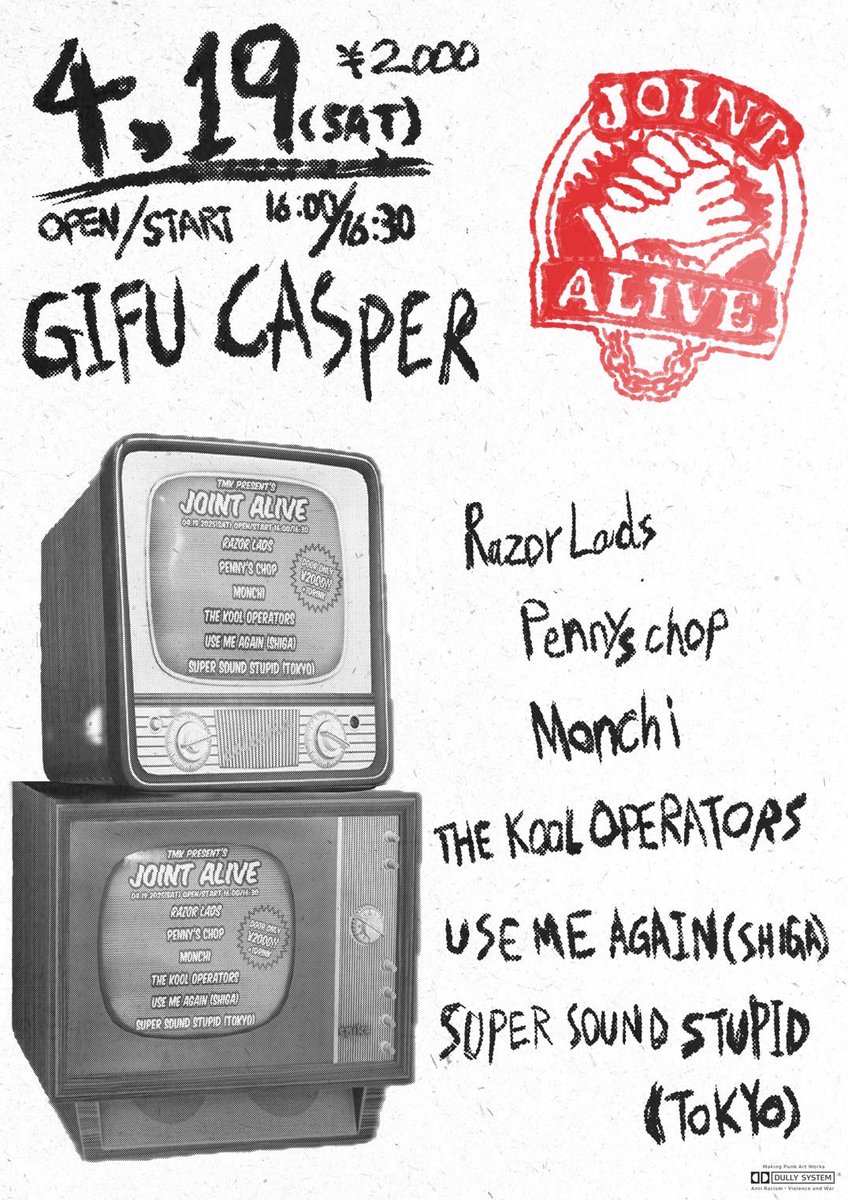 4.19(SAT)
¥2000
OPEN/START 16:00/16:30
GIFU CASPER
JOINT
ALIVE
TMK PRESENT'S
JOINT ALIVE
04.19.2025(SAT) OPEN/START 16:00/16:30
RAZOR LADS
PENNY'S CHOP
MONCHI
THE KOOL OPERATORS
USE ME AGAIN (SHIGA)
SUPER SOUND STUPID (TOKYO)
DOOR ONLY
¥2000!!
+1DRINK
Razor Lads
Penny's chop
Monchi
THE KOOL OPERATORS
USE ME AGAIN (SHIGA)
SUPER SOUND STUPID
(TOKYO)
TMK PRESENT'S
JOINT ALIVE
04.19.2025(SAT) OPEN/START 16:00/16:30
RAZOR LADS
PENNY'S CHOP
MONCHI
THE KOOL OPERATORS
USE ME AGAIN (SHIGA)
SUPER SOUND STUPID (TOKYO)
DOOR ONLY
¥2000!!
+1DRINK
Making Punk Art Works
DULLY SYSTEM®
Anti Racism・Violence and War